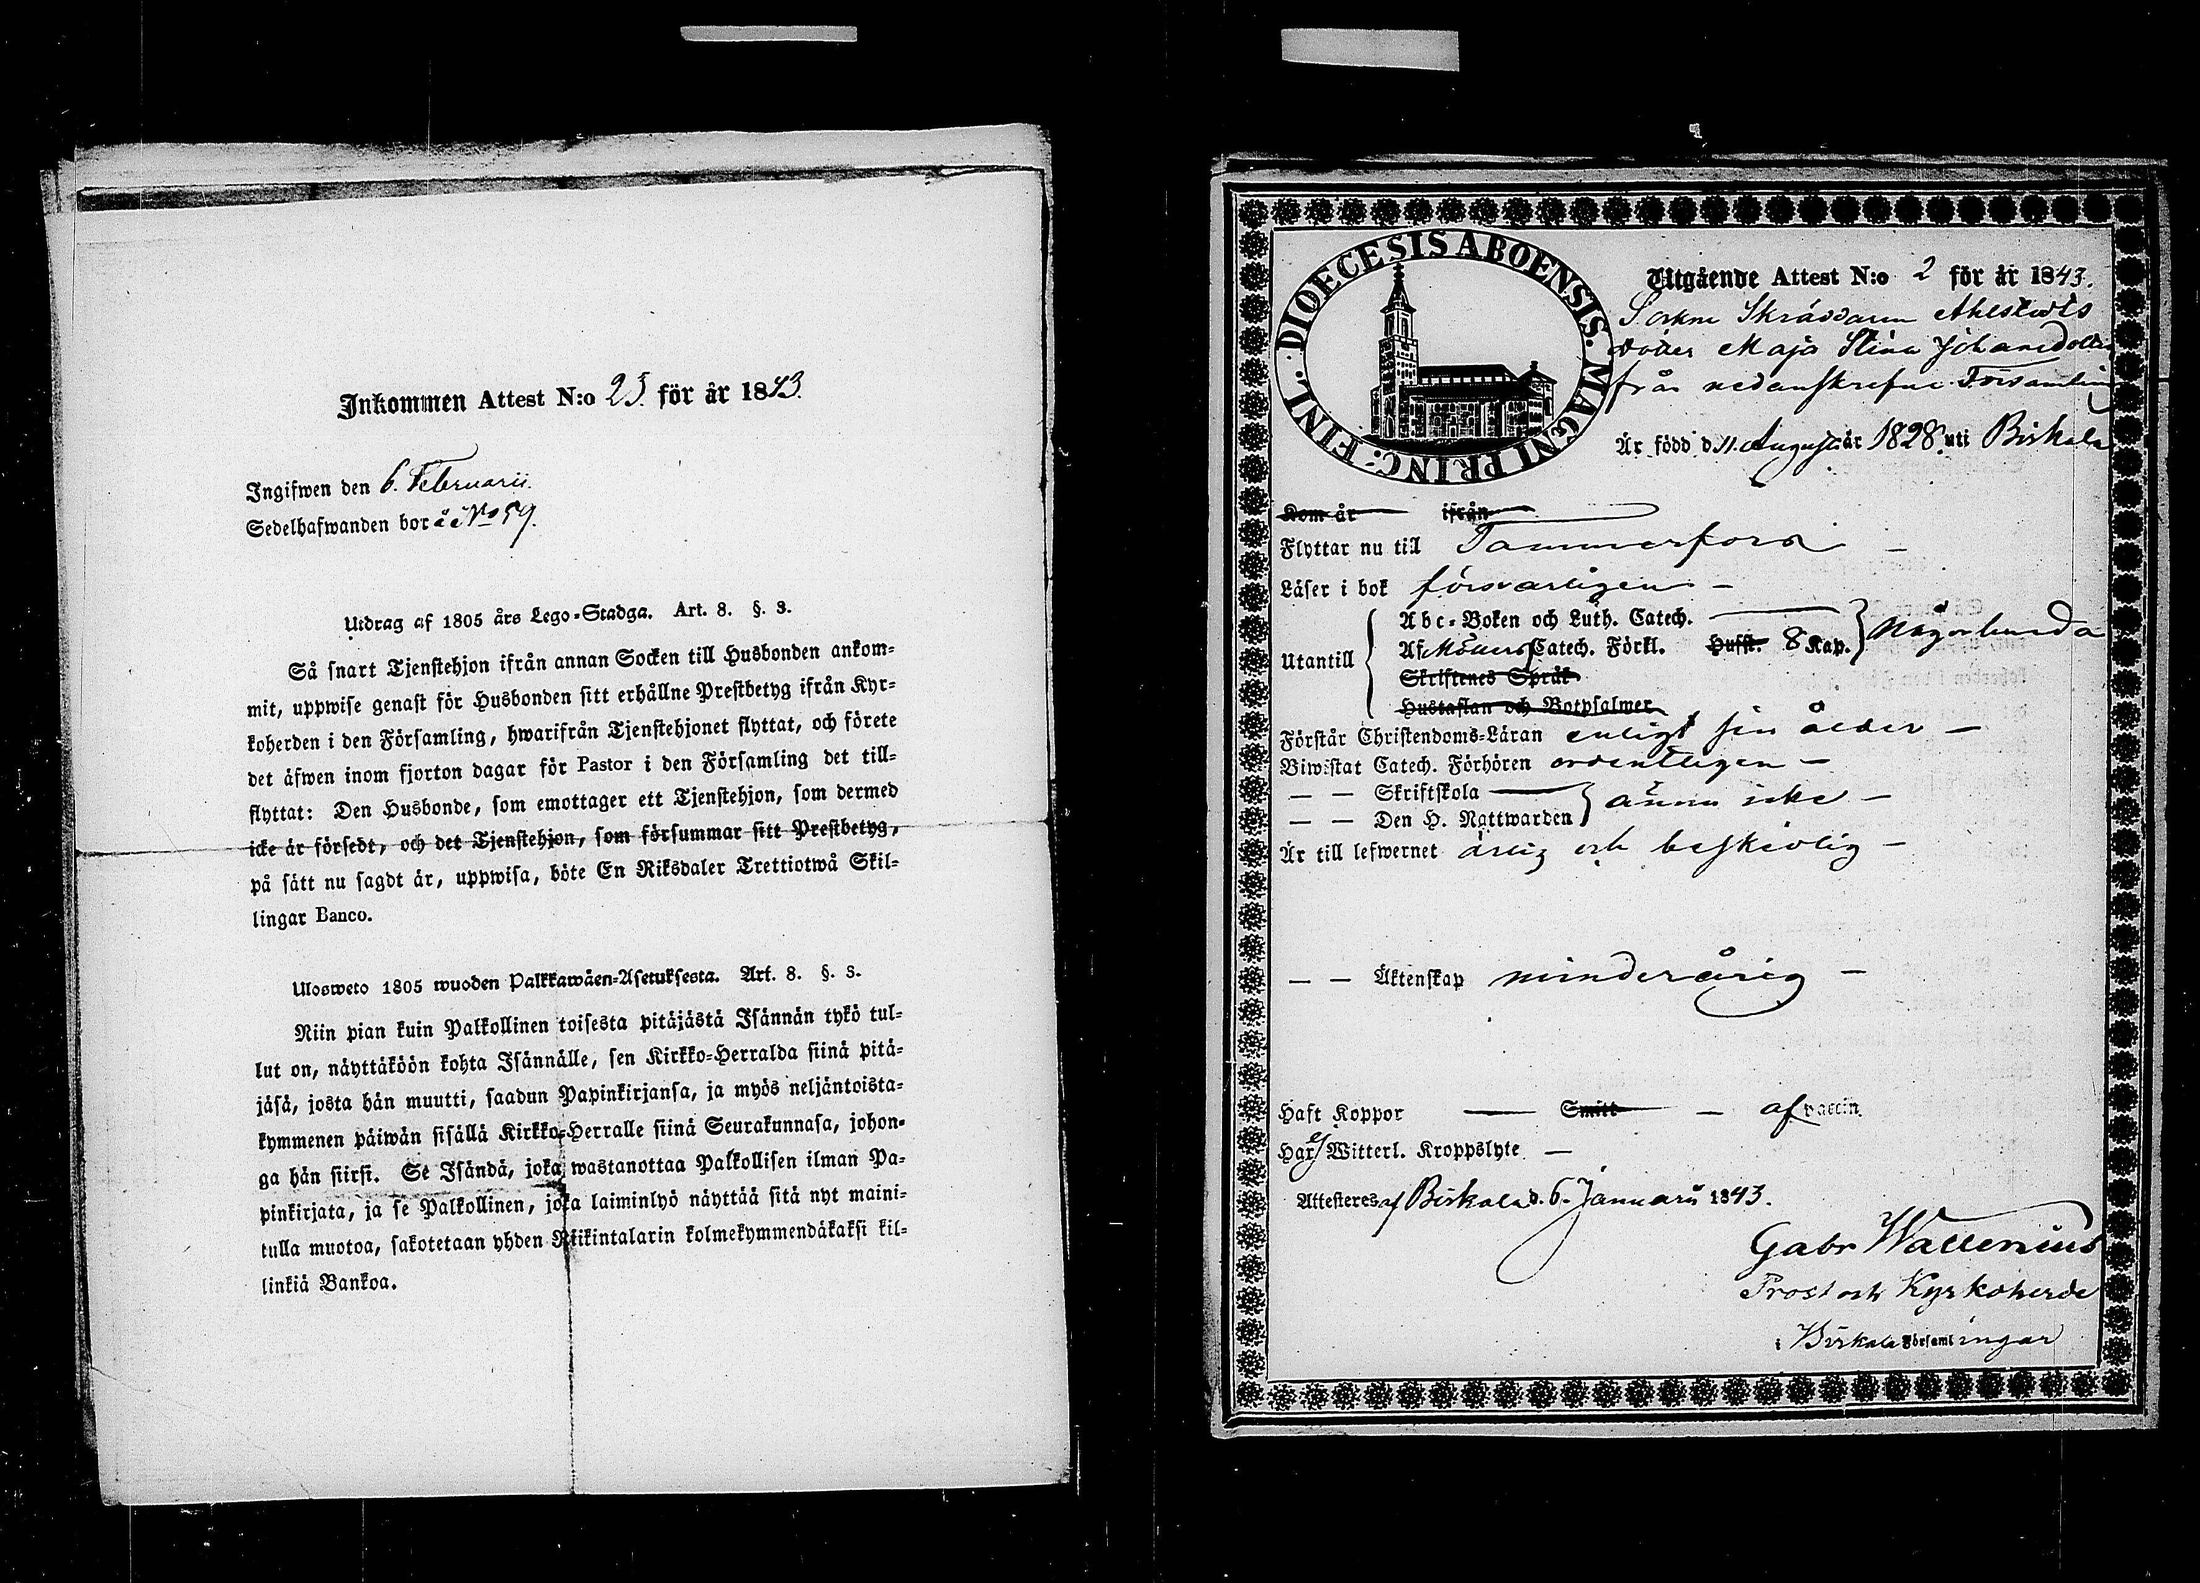 Inkommen Attest N:o 25. för år 1843.
Ingifwen den 6. Februarii.
Sedelhafwanden bor å No 59.
Utdrag af 1805 års Lego-Stadga. Art. 8. §. 3.
Så snart Tjenstehjon ifrån annan Socken till Husbonden ankom-
mit, uppwise genast för Husbonden sitt erhållne Prestbetyg ifrån Kyr-
koherden i den Församling, hwarifrån Tjenstehjonet flyttat, och förete
det äfwen inom fjorton dagar för Pastor i den Församling det till-
flyttat: Den Husbonde, som emottager ett Tjenstehjon, som dermed
icke är försedt, och det Tjenstehjon, som försummar sitt Prestbetyg,
på sätt nu sagdt är, uppwisa, böte En Riksdaler Trettiotwå Skil-
lingar Banco.
Ulosweto 1805 wuoden Palkkawäen-Asetuksesta. Art. 8. §. 3.
Niin pian kuin Palkollinen toisesta pitäjästä Isännän tykö tul-
lut on, näyttäköön kohta Isännälle, sen Kirkko-Herralda siinä pitä-
jäsä, josta hän muutti, saadun Papinkirjansa, ja myös neljäntoista-
kymmenen päiwän sisällä Kirkko-Herralle siinä Seurakunnasa, johon-
ga hän siirsi. Se Isändä, joka wastanottaa Palkollisen ilman Pa-
pinkirjata, ja se Palkollinen, joka laiminlyö näyttää sitä nyt maini-
tulla muotoa, sakotetaan yhden Riikintalarin kolmekymmendäkaksi kil-
linkiä Bankoa.
DIOECESIS ABOENSIS. MAGNI PRINC: FINL.
Utgående Attest N:o 2 för år 1843.
Sockne Skräddaren Ahlstedts
Maja Stina Johansdotter
från nedanskrefne Församling
Är född d. 11. Augusti år 1828. uti Birkala
Kom år ifrån
Flyttar nu till Tammerfors
Läser i bok försvarligen
Utantill
Abc-Boken och Luth. Catech.
Af Möllers Catech. Förkl. Husst. 8 Kap. Någorlunda
Skriftenes Språk
Hustaflan och Botpsalmer
Förstår Christendoms-Läran enligt sin ålder
Biwistat Catech. Förhören ordentligen
— — Skriftskola
— — Den H. Nattwarden ännu icke
Är till lefwernet ärlig och beskedlig
— — Äktenskap minderårig
Haft Koppor — Smitt — af vaccin.
Har ej Witterl. Kroppslyte —
Attesteres af Birkala d. 6. Januarii 1843.
Gabr Wallenius
Prost och Kyrkoherde
i Birkala Församlingar